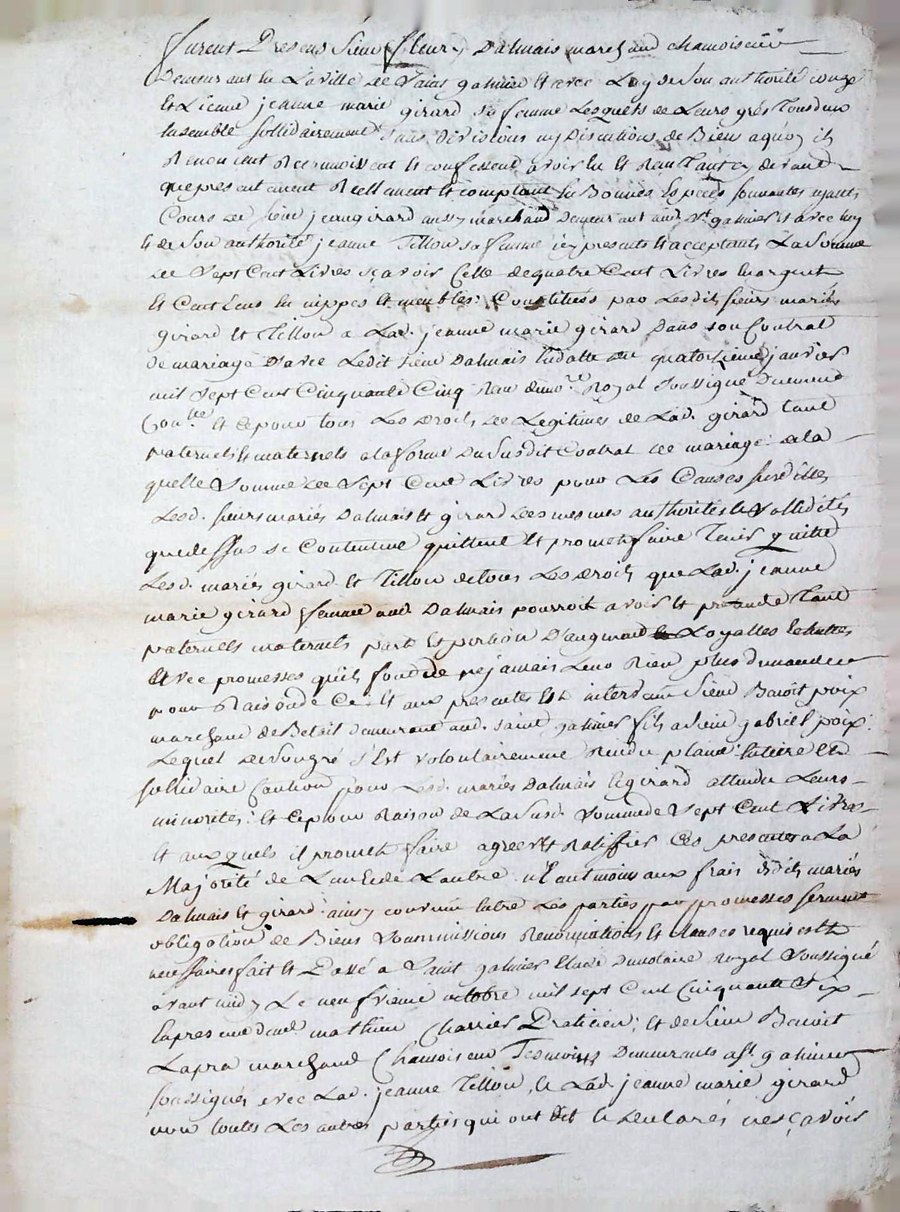 furent Presens sieur fleury Dalmais marchand chamoiseur
Demeurant en La ville de Saint galmier et avec Luy de son authorité
et Licence jeanne marie girard sa femme Lesquels de Leurs grés Tous deux
Ensemble sollidairement sans divisions ny Discutions de Biens aquoy ils
Renoncent Recennoissent et confessent avoir eu et Reau
que presentement Reellement et comptant en Bonnes Especes sonnantes ayant
Cours de sieur jean girard aussy marchand Demeurant aud. St galmier et avec luy
et de son authorité jeanne Tillon sa femme icy presents et acceptants La somme
de Sept Cent Livres sçavoir Celle de quatre Cent Livres En argent
et Cent Ecus En nippes et meubles. Constitués par Lesdits sieurs mariés
girard et Tillon a Lad. jeanne marie girard Dans son Contrat
de mariage D'avec Ledit sieur Dalmais En datte du quatorzieme janvier
mil Sept Cent Cinquante Cinq Reau Royal soussigné
et ce pour tous Les Droits de Legitimes de Lad. girard tant
paternels et maternels a la forme Du susdit Contrat de mariage. de la
quelle somme de Sept Cent Livres pour Les Causes susdittes
Lesd. sieurs mariés Dalmais et girard des mesmes authorités et sollidités
que dessus se Contentent quittent et promet faire Tenir quitte
Lesd. mariés girard et Tillon de tous Les Droits que Lad. jeanne
marie girard femme aud. Dalmais pourroit avoir et pretendre Tant
paternels maternels part et portion D'augment Loyalles Echuttes
avec promesses qu'ils font de ne jamais Leur Rien plus demander
pour Raison de Ce. et aux presentes Est intervenu sieur Benoit poix
marchand de Betail demeurant aud. saint galmier fils a sieur gabriel poix.
Lequel de son gré s'Est volontairement Rendu plaine Entiere et
sollidaire Caution pour Lesd. mariés Dalmais et girard attendu Leurs
minorités. et ce pour Raison de La susd. somme de Sept Cent Livres
et auxquels il promet faire agreer et Ratiffier Ces presentes a La
Majorité de L'un Et de L'autre. n'Eautmoins aux frais desdits mariés
Dalmais et girard. ainsy convenu Entre Les parties par promesses serment
obligation de Biens soummissions Renonciations et Clauses requises et
necessaires fait et Passé a Saint galmier Etude du notaire royal soussigné
avant midy Le neufvieme octobre mil sept Cent Cinquante Six
En presence de mathieu Charrier Praticien; et de sieur Benoit
Lapra marchand Chamoiseur Tesmoins Demeurants a St. galmier
soussignés avec Lad. jeanne Tillon, et Lad. jeanne marie girard
non toutes Les autres parties qui ont dit et declarés ne sçavoir